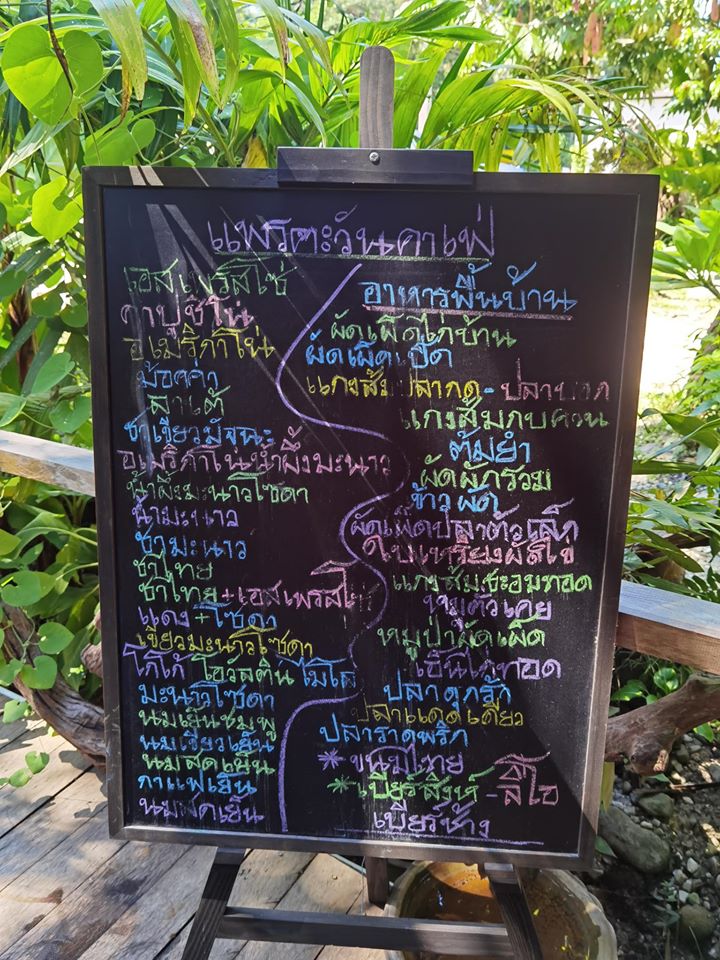 แพรตะวันคาเฟ่
เอสเพรสโซ่
คาปูชิโน่
อเมริกาโน่
ม้อคค่า
ลาเต้
ชาเขียวมัจฉะ
อเมริกาโน่น้ำผึ้งมะนาว
น้ำผึ้งมะนาวโซดา
น้ำมะนาว
ชามะนาว
ชาไทย
ชาไทย+เอสเพรสโซ่
แดง+โซดา
เขียวมะนาวโซดา
โกโก้ โอวัลติน ไมโล
มะนาวโซดา
นมเย็นชมพู
นมเขียวเย็น
นมสดเย็น
กาแฟเย็น
นมสดเย็น
อาหารพื้นบ้าน
ผัดเผ็ดไก่บ้าน
ผัดเผ็ดเป็ด
แกงส้มปลากด-ปลา
แกงส้มกบควน
ต้มยำ
ผัดผักรวม
ข้าวผัด
ผัดเผ็ดปลาตัวเล็ก
ใบเหรียงผัดไข่
แกงส้มชะอมทอด
หมูป่าผัดเผ็ด
เอ็นไก่ทอด
ปลาดุกร้า
ปลาแดดเดียว
ปลาราดพริก
*ขนมไทย
*เบียร์สิงห์-ลีโอ
เบียร์ช้าง